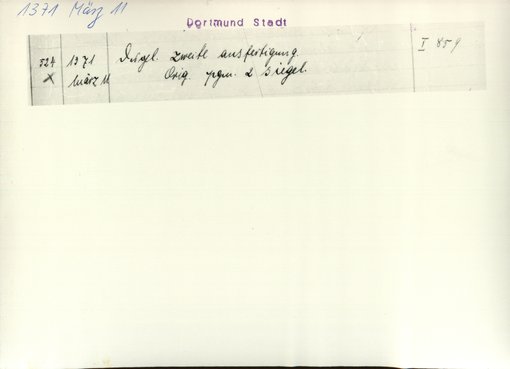 1371 März 11
Dortmund Stadt
524 1371 Dsgl. zweite ausfertigung. I 859
x März 11 Orig. pgm. 2 siegel.